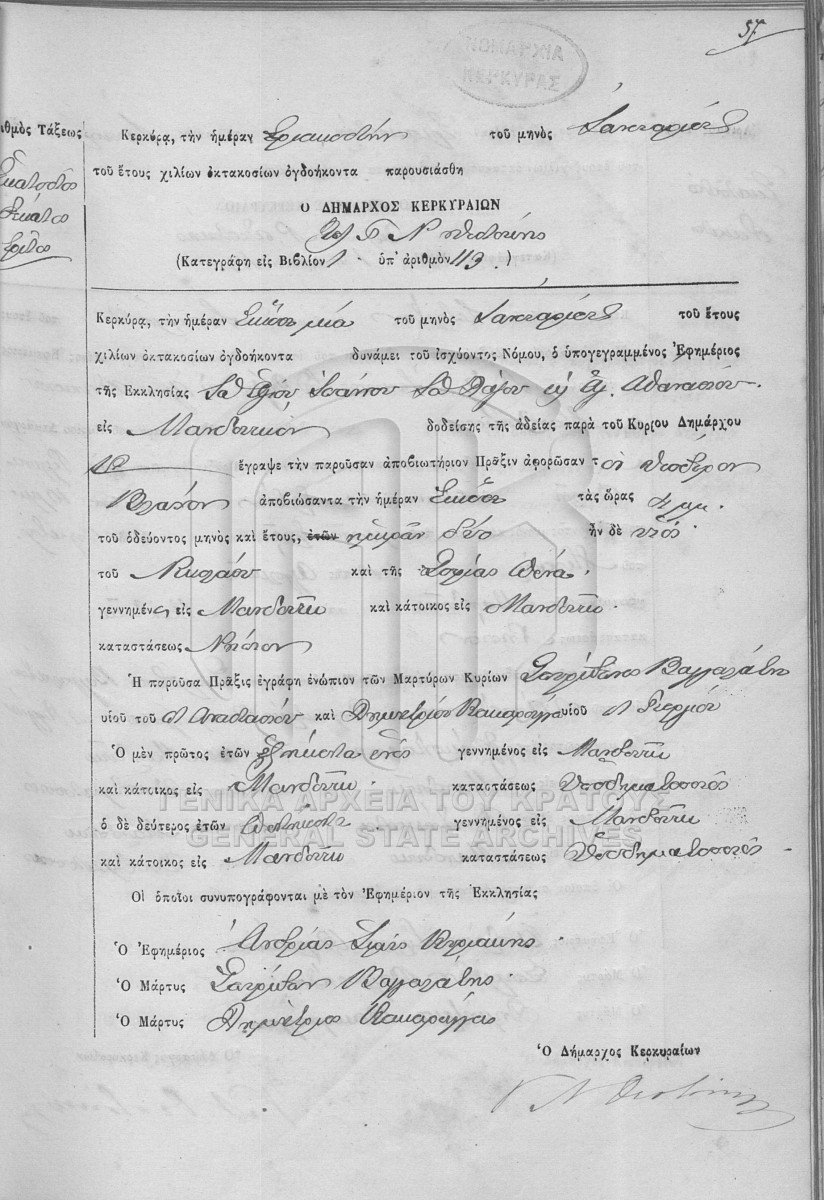 57
ΝΟΜΑΡΧΙΑ
ΚΕΡΚΥΡΑΣ
ιθμὸς Τάξεως
Ἑκατοστὸς
Δέκατος
Τρίτος
Κερκύρᾳ, τὴν ἡμέραν Τριακοστὴν τοῦ μηνὸς Ἰανουαρίου
τοῦ ἔτους χιλίων ὀκτακοσίων ὀγδοήκοντα παρουσιάσθη
Ο ΔΗΜΑΡΧΟΣ ΚΕΡΚΥΡΑΙΩΝ
Γ Ν Θεοτόκης
(Κατεγράφη εἰς Βιβλίον 1 ὑπ' ἀριθμὸν 113.)
Κερκύρᾳ, τὴν ἡμέραν Εἴκοσι μία τοῦ μηνὸς Ἰανουαρίου τοῦ ἔτους
χιλίων ὀκτακοσίων ὀγδοήκοντα δυνάμει τοῦ ἰσχύοντος Νόμου, ὁ ὑπογεγραμμένος Ἐφημέριος
τῆς Ἐκκλησίας τοῦ Ἁγίου Ἰωάννου τοῦ Λάζου Ἁγ. Ἀθανασίου.
εἰς Μανδουκιον δοδείσης τῆς ἀδείας παρὰ τοῦ Κυρίου Δημάρχου
ἔγραψε τὴν παροῦσαν ἀποβιωτήριον Πρᾶξιν ἀφορῶσαν τ
ἀποβιώσαντα τὴν ἡμέραν Εἴκοσι τὰς ὥρας 4 μμ.
τοῦ ὁδεύοντος μηνὸς καὶ ἔτους, ἐτῶν ἡμερῶν δύο ἦν δὲ υἱός
τοῦ Νικολάου καὶ τῆς Σοφίας
γεννημένος εἰς Μανδούκι καὶ κάτοικος εἰς Μανδούκι.
καταστάσεως Νήπιον
Ἡ παροῦσα Πρᾶξις ἐγράφη ἐνώπιον τῶν Μαρτύρων Κυρίων Σπυρίδωνος
υἱοῦ τοῦ π Ἀναστασίου καὶ Δημητρίου υἱοῦ π Γεωργίου
Ὁ μὲν πρῶτος ἐτῶν ἑξήκοντα ἑνὸς γεννημένος εἰς Μανδούκι
καὶ κάτοικος εἰς Μανδούκι. καταστάσεως Ὑποδηματοποιός
ΓΕΝΙΚΑ ΑΡΧΕΙΑ ΤΟΥ ΚΡΑΤΟΥΣ
ὁ δὲ δεύτερος ἐτῶν γεννημένος εἰς Μανδούκι
GENERAL STATE ARCHIVES
καὶ κάτοικος εἰς Μανδούκι καταστάσεως Ὑποδηματοποιός.
Οἱ ὁποῖοι συνυπογράφονται μὲ τὸν Ἐφημέριον τῆς Ἐκκλησίας
Ὁ Ἐφημέριος Ἀνδρέας Ἱερεὺς Κυριάκης.
Ὁ Μάρτυς Σπυρίδων
Ὁ Μάρτυς Δημήτριος
Ὁ Δήμαρχος Κερκυραίων
Γ Ν Θεοτόκης